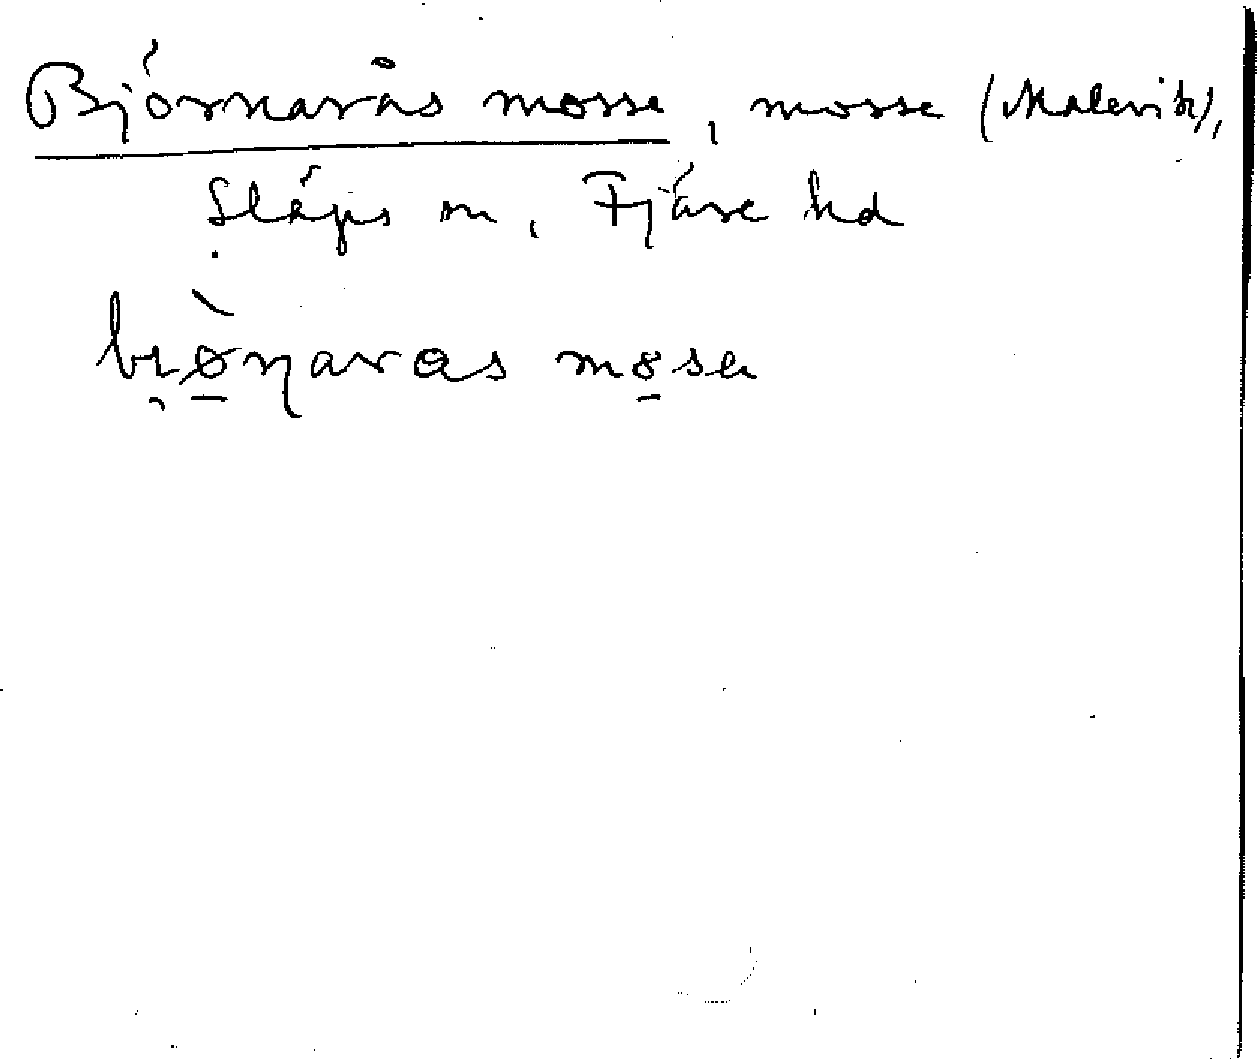 Björnarås mosse, mosse (Malevik),
Släps sn, Fjäre hd
bi̯ø̠̀ɳaras mo̠sɐ